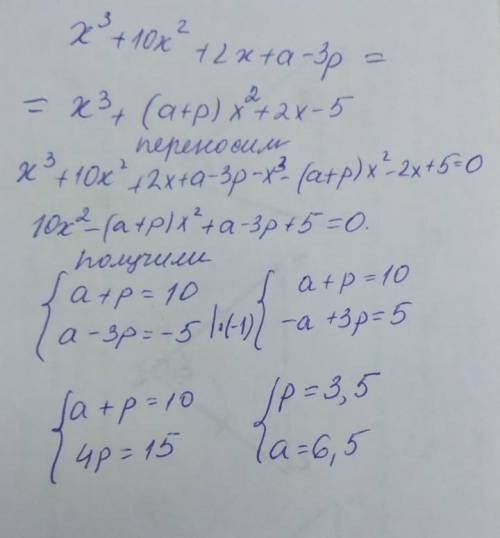 x³+10x²+2x+a-3p =
= x³+(a+p)x²+2x-5
переносим
x³+10x²+2x+a-3p-x³-(a+p)x²-2x+5=0
10x²-(a+p)x²+a-3p+5=0.
получили
{ a+p=10 { a+p=10
{ a-3p=-5 |·(-1) { -a+3p=5
{ a+p=10 { p=3,5
{ 4p=15 { a=6,5